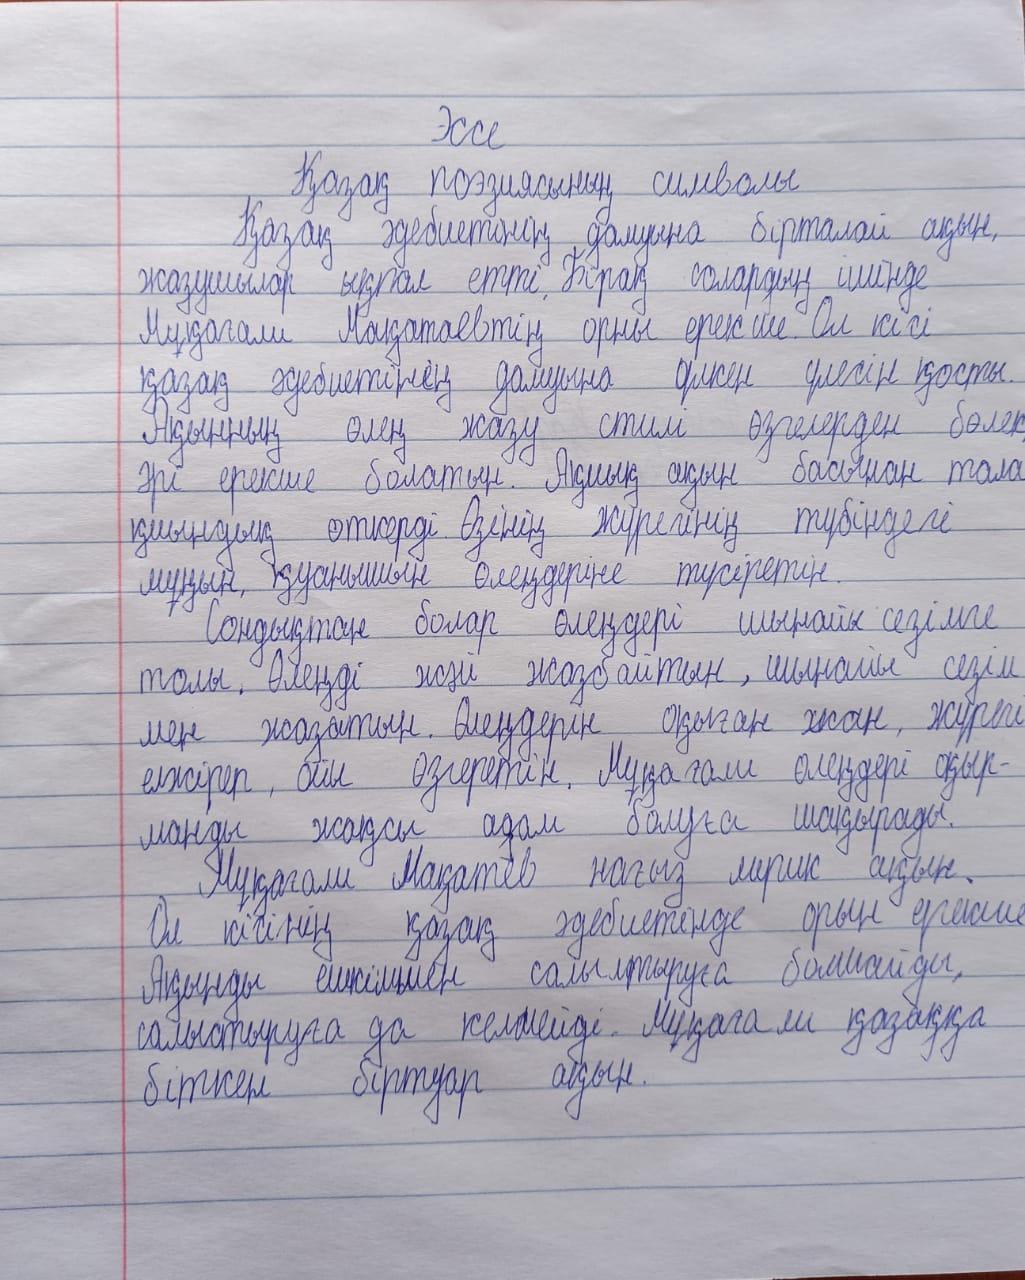 Эссе
Қазақ поэзиясының символы
Қазақ әдебиетінің дамуына бірталай ақын,
жазушылар ықпал етті. Бірақ солардың ішінде
Мұқағали Мақатаевтің орны ерекше. Ол кісі
қазақ әдебиетінің дамуына үлкен үлесін қосты.
Ақынның өлең жазу стилі өзгелерден бөлек
әрі ерекше болатын. Ақиық ақын басынан тала
қиындық өткерді. Өзінің жүрегінің түбіндегі
мұңын, қуанышын өлеңдеріне түсіретін.
Сондықтан болар өлеңдері шынайы сезімге
толы. Өлеңді жәй жазбайтын, шынайы сезім
мен жазатын. Өлеңдерін оқыған жан, жүрегі
елжіреп, ойы өзгеретін. Мұқағали өлеңдері оқыр-
манды жақсы адам болуға шақырады.
Мұқағали Мақатев нағыз лирик ақын.
Ол кісінің қазақ әдебиетінде орын ерекше
Ақынды ешкіммен салыстыруға болмайды,
салыстыруға да келмейді. Мұқағали қазаққа
біткен біртуар ақын.